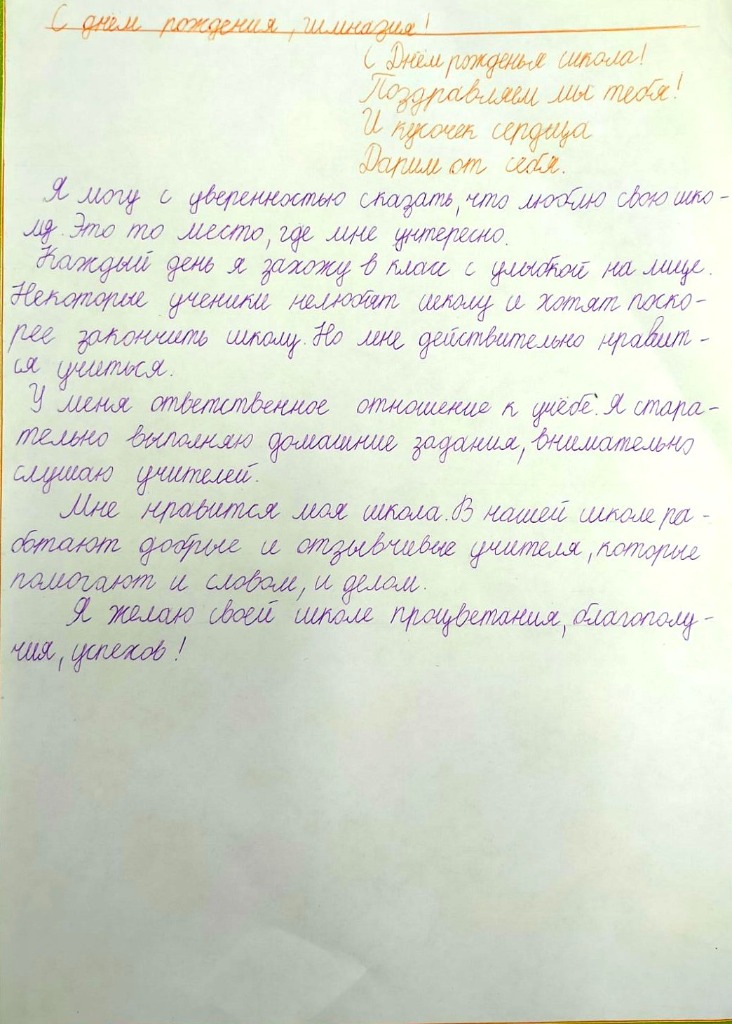 С днём рождения, гимназия!
С Днём рожденья школа!
Поздравляем мы тебя!
И кусочек сердца
Дарим от себя.
Я могу с уверенностью сказать, что люблю свою шко-
лу. Это то место, где мне интересно.
Каждый день я захожу в класс с улыбкой на лице.
Некоторые ученики нелюбят школу и хотят поско-
рее закончить школу. Но мне действительно нравит-
ся учиться.
У меня ответственное отношение к учёбе. Я стара-
тельно выполняю домашние задания, внимательно
слушаю учителей.
Мне нравится моя школа. В нашей школе ра-
ботают добрые и отзывчивые учителя, которые
помогают и словом, и делом.
Я желаю своей школе процветания, благополу-
чия, успехов!